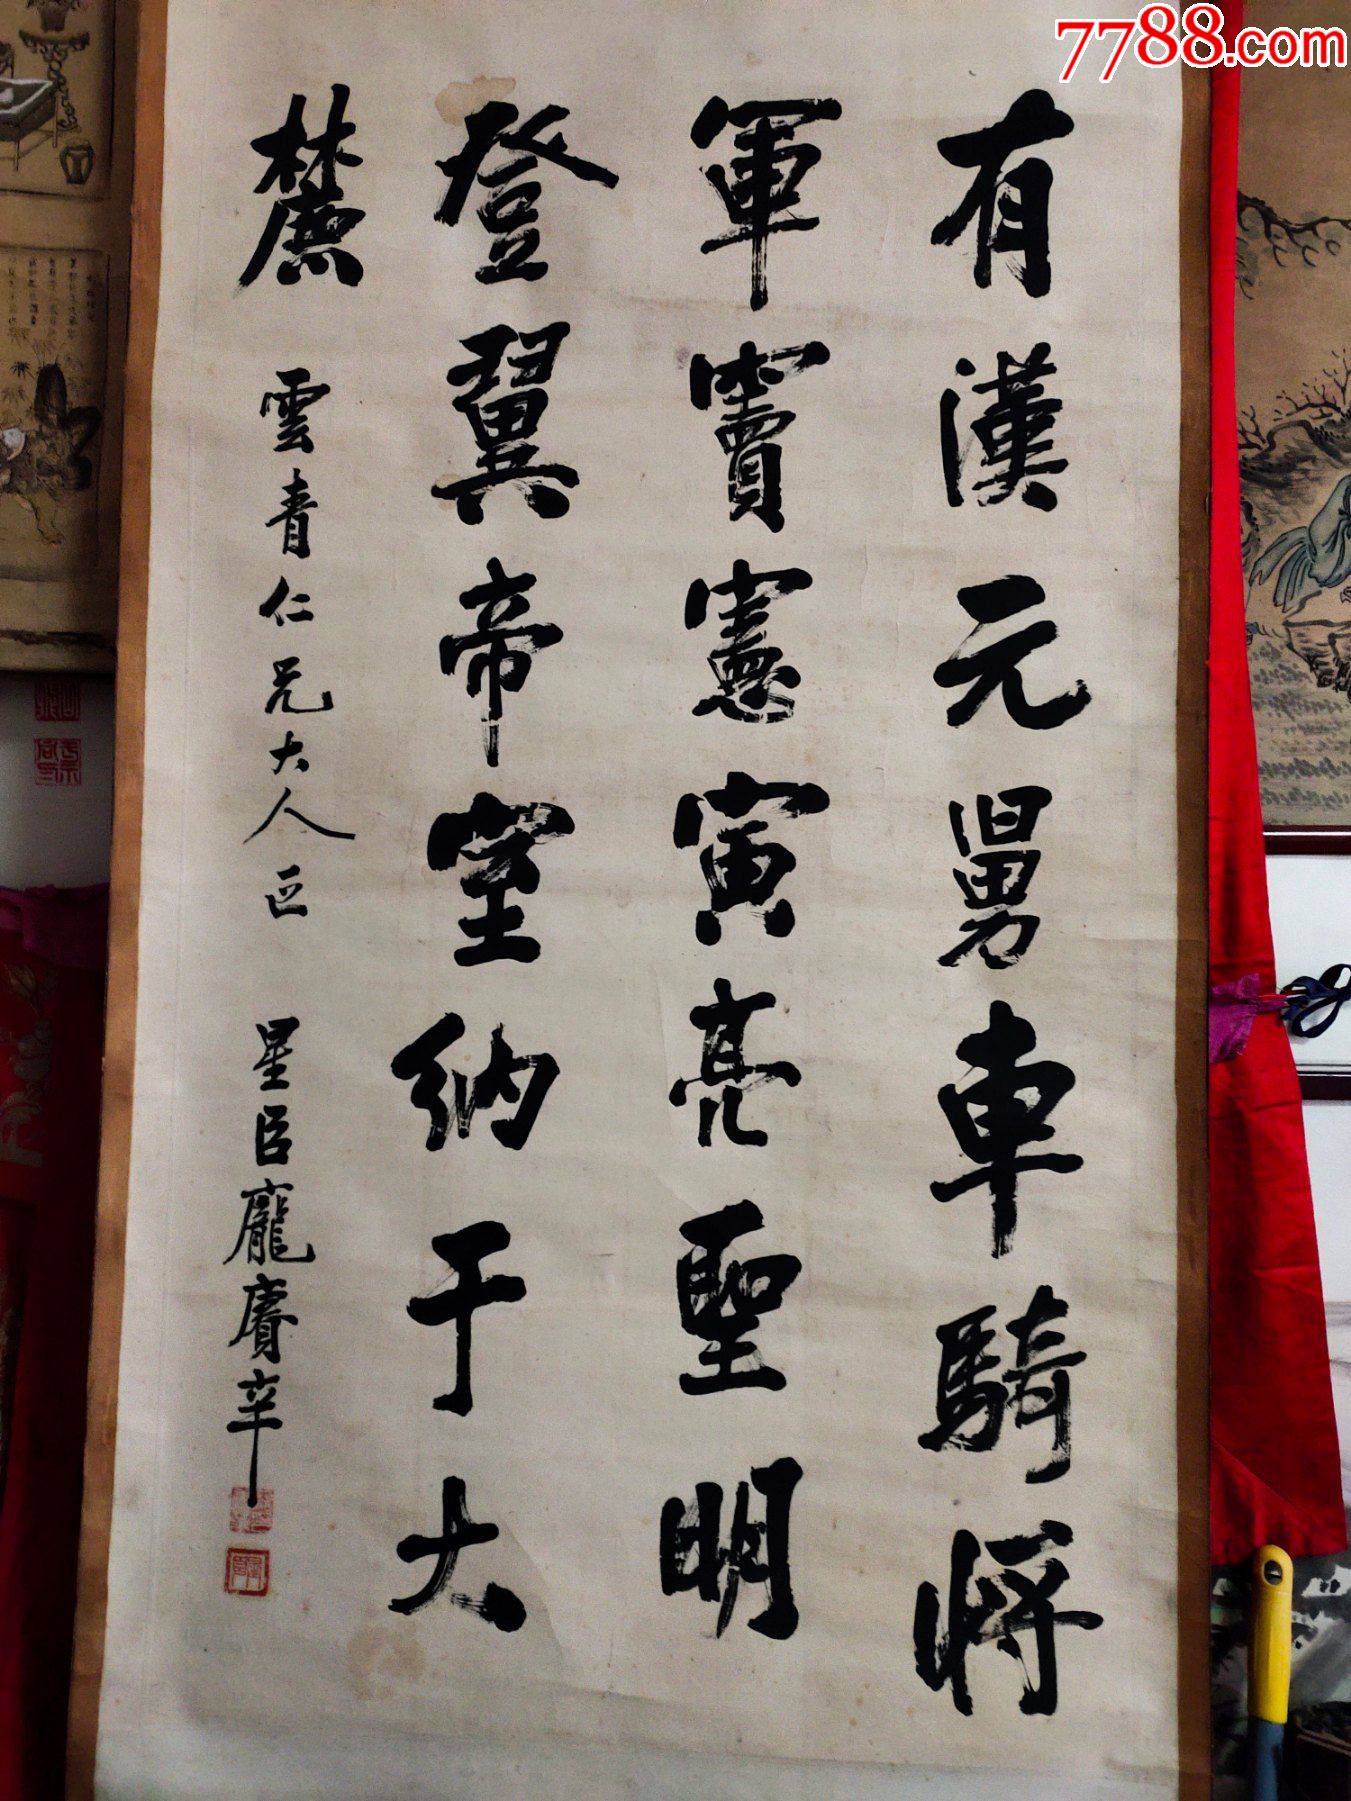 7788.com
有漢元舅車騎將
軍竇憲寅亮聖明
登翼帝室納于大
麓
雲青仁兄大人正
星臣龐賡辛